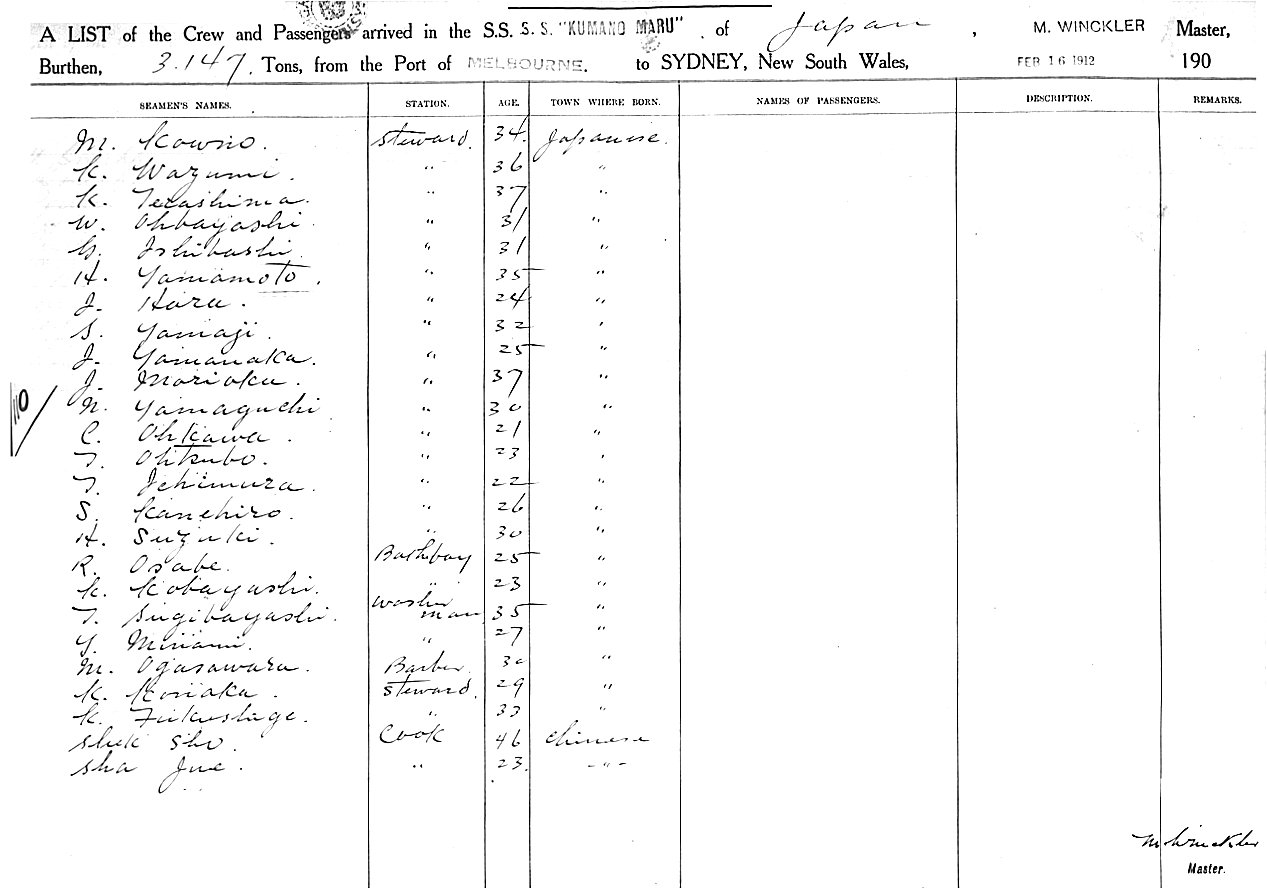 A LIST of the Crew and Passengers arrived in the S.S. S. S. "KUMANO MARU" of Japan, M. WINCKLER Master,
Burthen, 3.147. Tons, from the Port of MELBOURNE. to SYDNEY, New South Wales, FEB 16 1912 190
SEAMEN'S NAMES. STATION. AGE. TOWN WHERE BORN. NAMES OF PASSENGERS. DESCRIPTION. REMARKS.
M. Kowno. Steward. 34. Japanese.
K. Wazumi. " 36 "
K. Terashima. " 37 "
W. Ohbayashi. " 31 "
G. Ishibashi. " 31 "
H. Yamamoto. " 35 "
J. Hara. " 24 "
S. Yamaji. " 32 "
J. Yamanaka. " 25 "
J. Morioka. " 37 "
N. Yamaguchi " 30 "
110
C. Ohkawa. " 21 "
T. Ohkubo. " 23 "
T. Ichimura. " 22 "
S. Kanehiro. " 26 "
H. Suzuki. " 30 "
R. Osabe. Bathboy 25 "
K. Kobayashi. " 23 "
T. Sugibayashi. washer man 35 "
Y. Minami. " 27 "
M. Ogasawara. Barber. 30 "
K. Steward. 29 "
K. " 33 "
Shek Sho. Cook 46 Chinese
Sha Jue. " 23. - " -
M Winckler
Master.